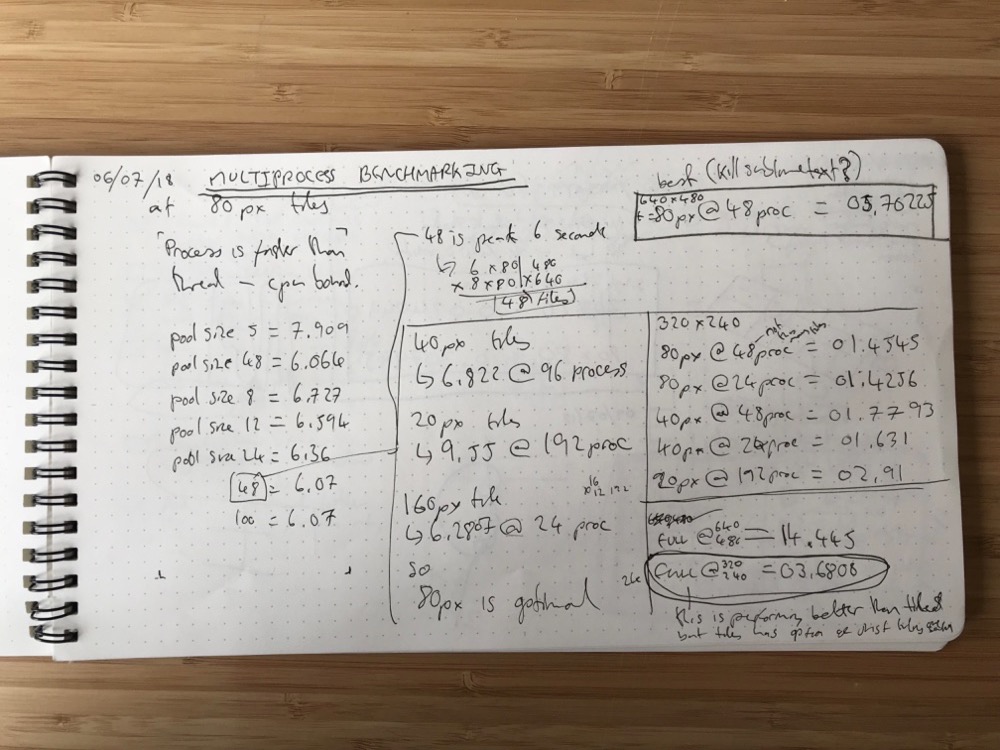 06/07/18 MULTIPROCESS BENCHMARKING
at 80 px tiles
"Process is faster than"
thread – cpu bound.
pool size 5 = 7.909
pool size 48 = 6.064
pool size 8 = 6.727
pool size 12 = 6.594
pool size 24 = 6.36
48 = 6.07
100 = 6.07
48 is peak 6 seconds
↳ 6 x 80 | 480
x 8 x 80 | x 640
48 tiles
40px tiles
↳ 6.822 @ 96 process
20px tiles
↳ 9.55 @ 192 proc
16
x12 192
160px tile
↳ 6.2807 @ 24 proc
so
80px is optimal
best (kill sublimetext?)
640x480
t=80px @ 48proc = 05.76225
320 x 240
80px @ 48proc = 01.4545
80px @ 24proc = 01.4256
40px @ 48proc = 01.7793
40px @ 24proc = 01.631
20px @ 192proc = 02.91
full @ 640 480 = 14.445
full @ 320 240 = 03.6808
this is performing better than tiled
but tiles has option of